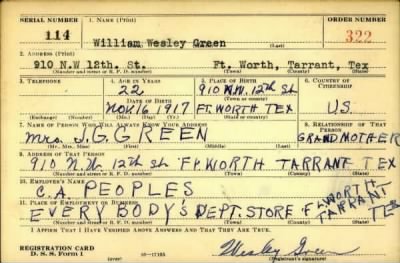 SERIAL NUMBER 1. NAME (Print) ORDER NUMBER
114 William Wesley Green 322
2. ADDRESS (Print)
910 N.W 12th. St. Ft. Worth, Tarrant, Tex
(Number and street or R. F. D. number) (Town) (County) (State)
3. TELEPHONE 4. AGE IN YEARS 5. PLACE OF BIRTH 6. COUNTRY OF CITIZENSHIP
22 910 N.W. 12th St
DATE OF BIRTH
Nov. 16, 1917 Ft. WORTH TEX U.S.
(Exchange) (Number) (Mo.) (Day) (Yr.) (State or country)
7. NAME OF PERSON WHO WILL ALWAYS KNOW YOUR ADDRESS 8. RELATIONSHIP OF THAT PERSON
Mrs. J. G. GREEN GRANDMOTHER
(Mr., Mrs., Miss) (First) (Middle) (Last)
9. ADDRESS OF THAT PERSON
910 N.W. 12th St. Ft. WORTH TARRANT TEX
(Number and street or R. F. D. number) (Town) (County) (State)
10. EMPLOYER'S NAME
C.A. PEOPLES
11. PLACE OF EMPLOYMENT OR BUSINESS
EVERY BODY'S DEPT. STORE Ft. WORTH TARRANT TEX
(Number and street or R. F. D. number) (Town) (County) (State)
I AFFIRM THAT I HAVE VERIFIED ABOVE ANSWERS AND THAT THEY ARE TRUE.
REGISTRATION CARD
D. S. S. Form 1 16—17105 Wesley Green